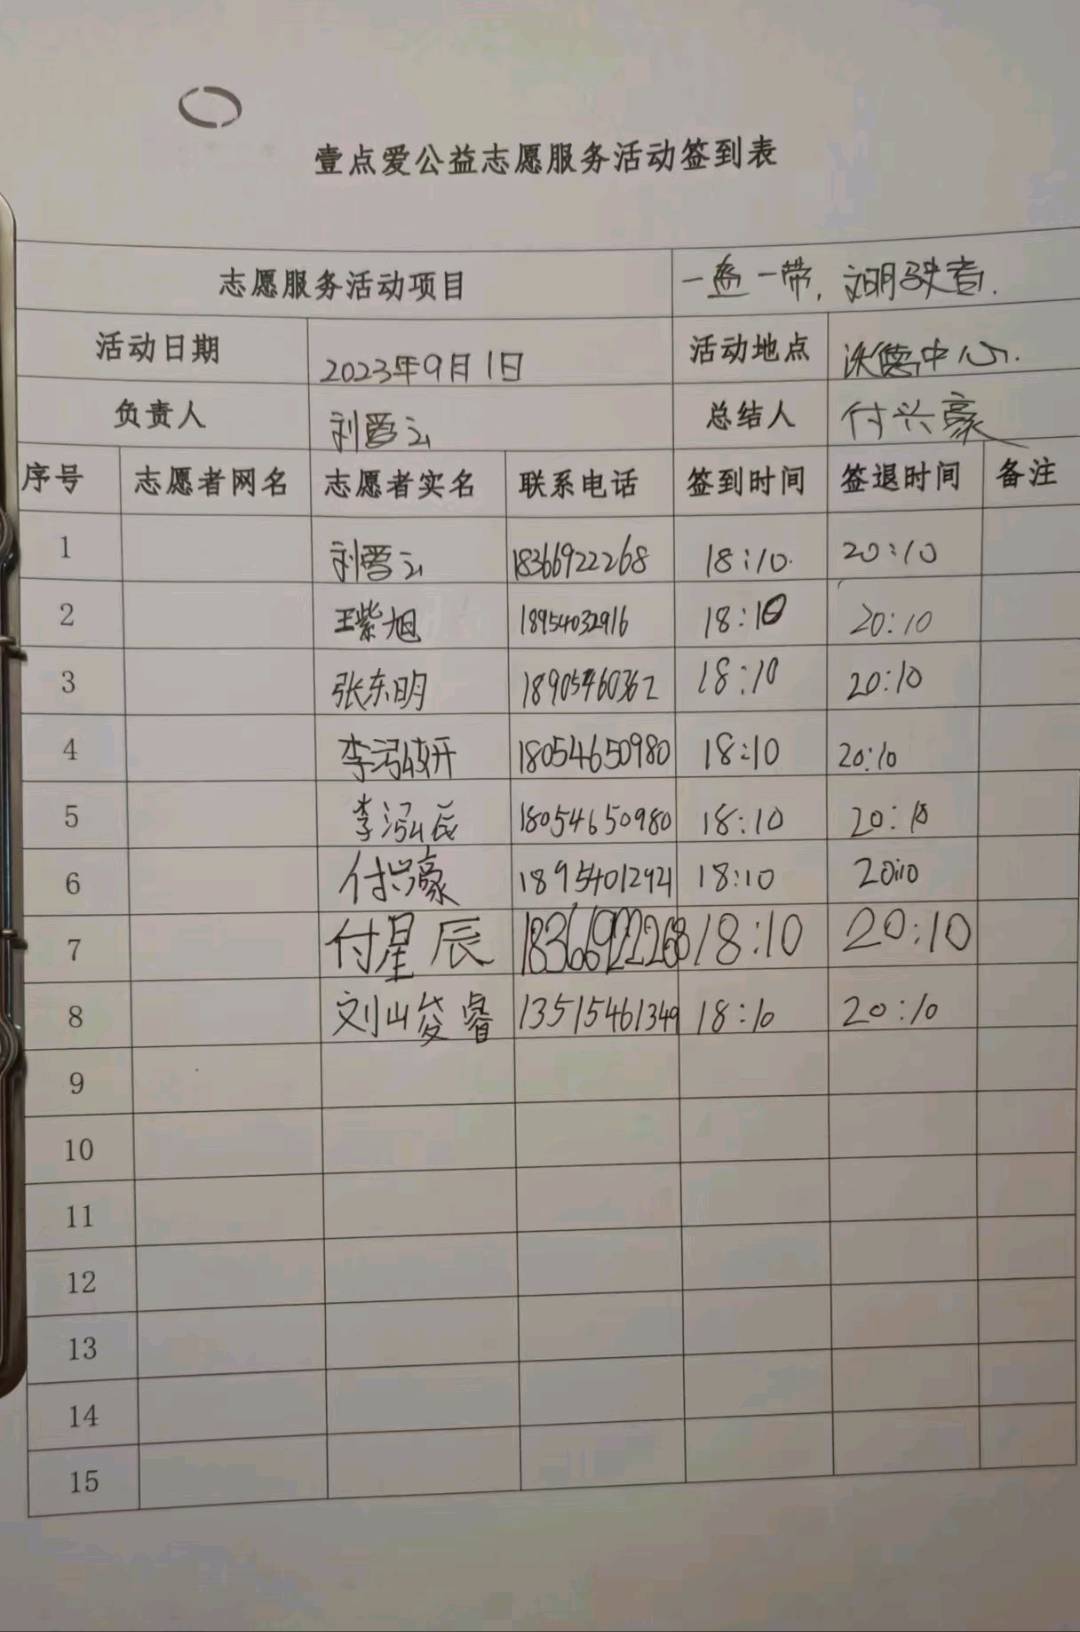 壹点爱公益志愿服务活动签到表
志愿服务活动项目 一盔一带，文明驶者.
活动日期 2023年9月1日 活动地点 中心.
负责人 刘爱云 总结人 付兴豪
序号 志愿者网名 志愿者实名 联系电话 签到时间 签退时间 备注
1 刘爱云 18366922268 18:10 20:10
2 王紫旭 18954032916 18:10 20:10
3 张东明 18905460362 18:10 20:10
4 李泓妍 18054650980 18:10 20:10
5 李泓辰 18054650980 18:10 20:10
6 付兴豪 18954012921 18:10 20:10
7 付星辰 18366922268 18:10 20:10
8 刘峻睿 13515461349 18:10 20:10
9
10
11
12
13
14
15